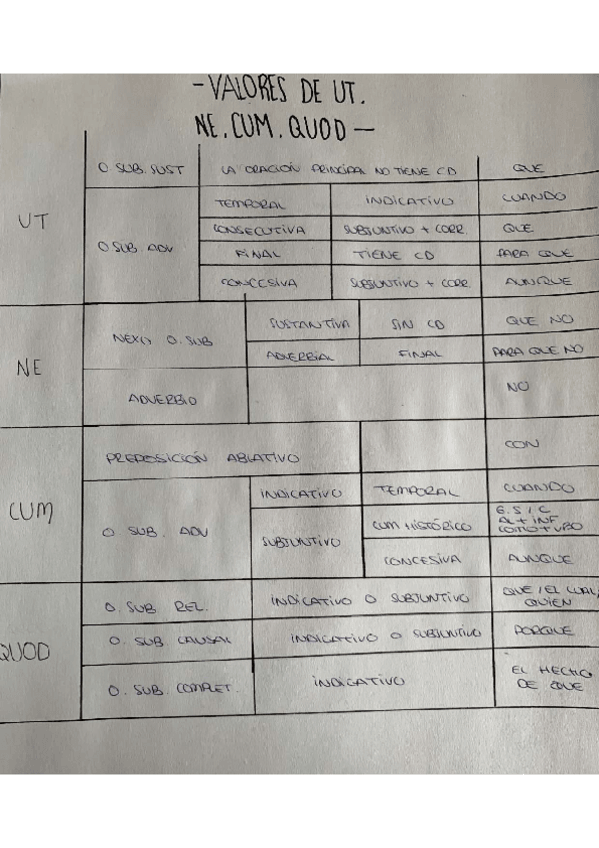 - VALORES DE UT.
NE. CUM. QUOD -
UT
O SUB. SUST LA ORACIÓN PRINCIPAL NO TIENE CD QUE
O SUB. ADV
TEMPORAL INDICATIVO CUANDO
CONSECUTIVA SUBJUNTIVO + CORR. QUE
FINAL TIENE CD PARA QUE
CONCESIVA SUBJUNTIVO + CORR AUNQUE
NE
NEXO O. SUB
SUSTANTIVA SIN CD QUE NO
ADVERBIAL FINAL PARA QUE NO
ADVERBIO NO
CUM
PREPOSICIÓN ABLATIVO CON
O SUB. ADV
INDICATIVO TEMPORAL CUANDO
SUBJUNTIVO
CUM HISTÓRICO
G.S / C
AL + INF
COMO + VBO
CONCESIVA AUNQUE
QUOD
O. SUB REL. INDICATIVO O SUBJUNTIVO
QUE / EL CUAL,
QUIEN
O. SUB CAUSAL INDICATIVO O SUBJUNTIVO PORQUE
O. SUB. COMPLET. INDICATIVO
EL HECHO
DE QUE